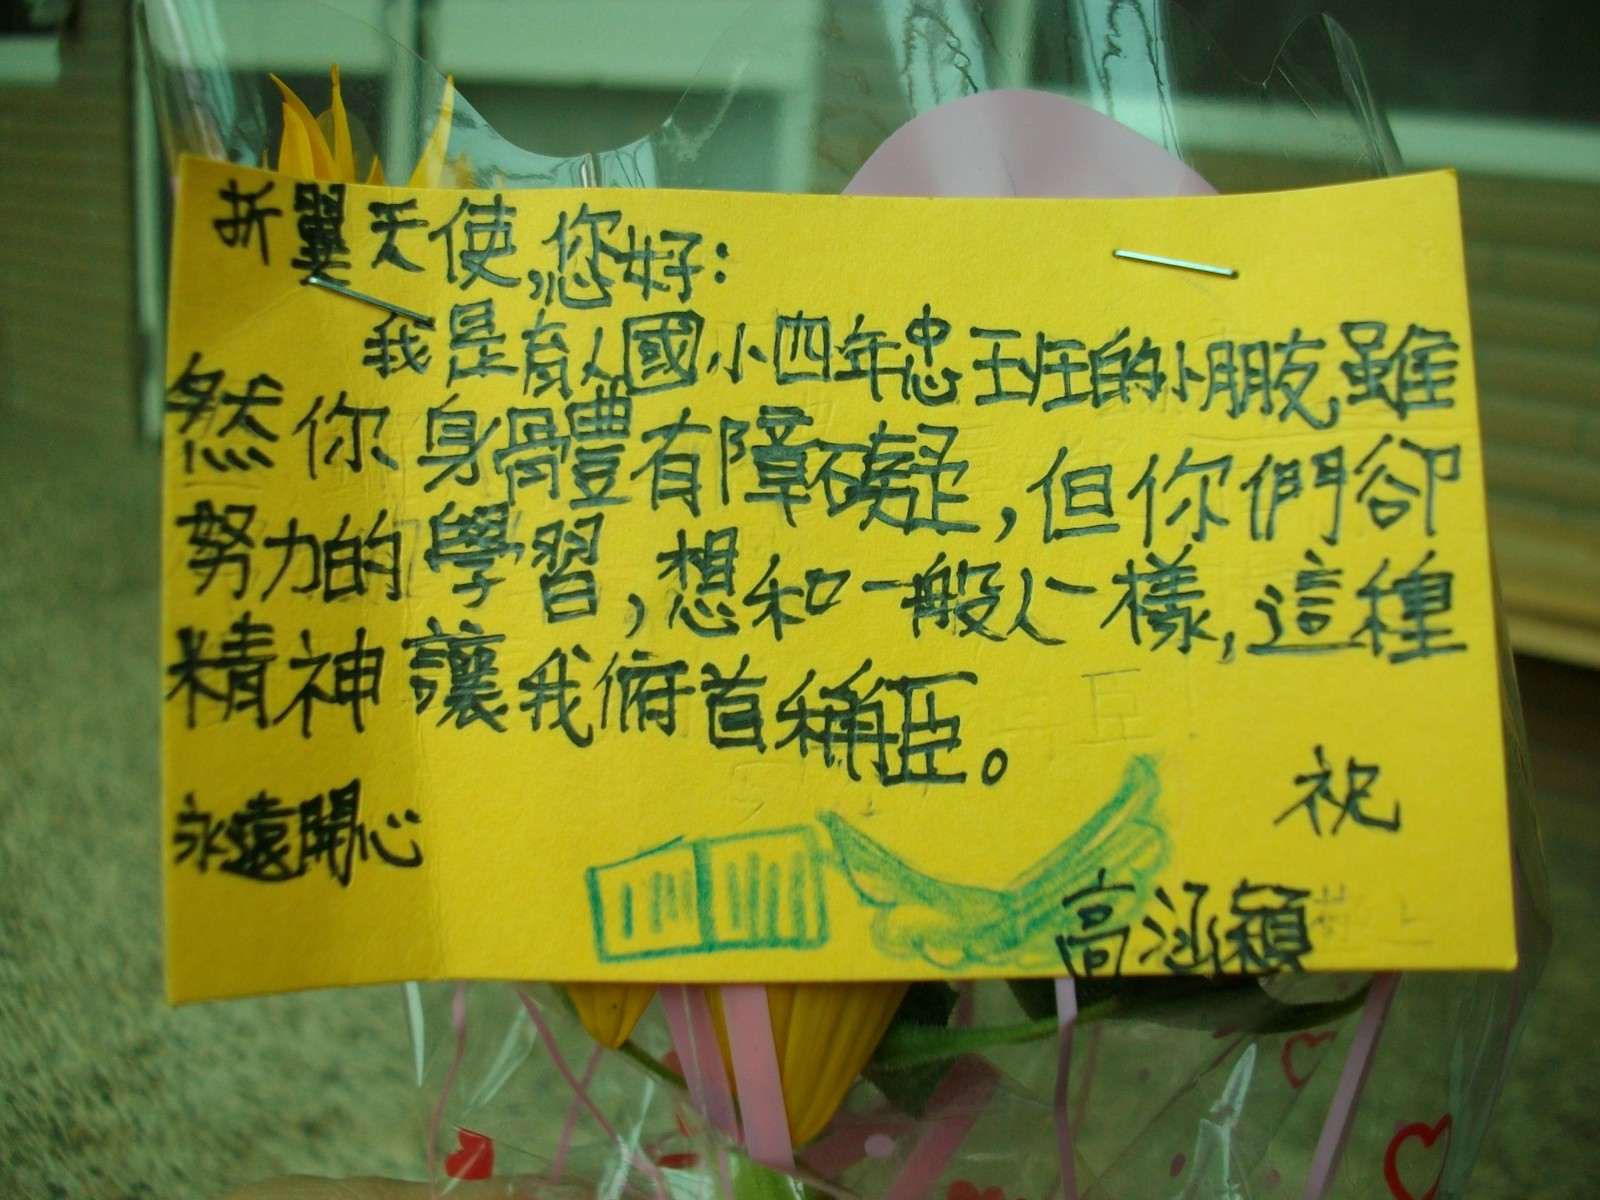 折翼天使,您好:
我是育人國小四年忠班的小朋友,雖
然你身體有障礙,但你們卻
努力的學習,想和一般人一樣,這種
精神讓我俯首稱臣。
祝
永遠開心
高涵穎